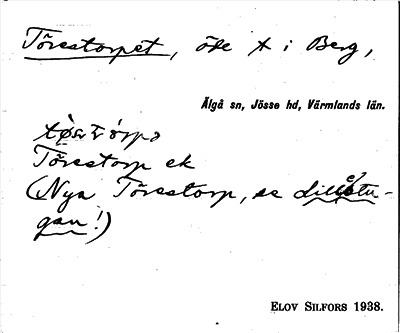 Törestorpet, öde t i Berg,
Älgå sn, Jösse hd, Värmlands län.
Törestorp ek
(Nya Törestorp, se Lillstu-
gan!)
ELOV SILFORS 1938.